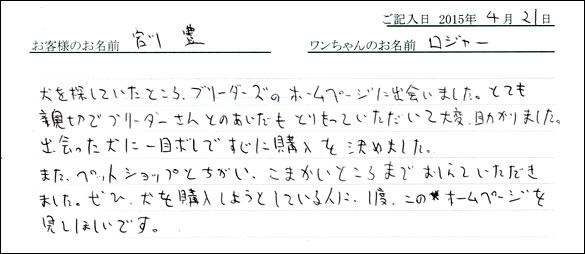 ご記入日 2015年 4月 21日
お客様のお名前 宮川 豊 ワンちゃんのお名前 ロジャー
犬を探していたところ、ブリーダーズのホームページに出会いました。とても
親切でブリーダーさんとのあいだもとりもっていただいて大変、助かりました。
出会った犬に一目ボレですぐに購入を決めました。
また、ペットショップとちがい、こまかいところまでおしえていただき
ました。ぜひ、犬を購入しようとしている人に、1度、このホームページを
見てほしいです。